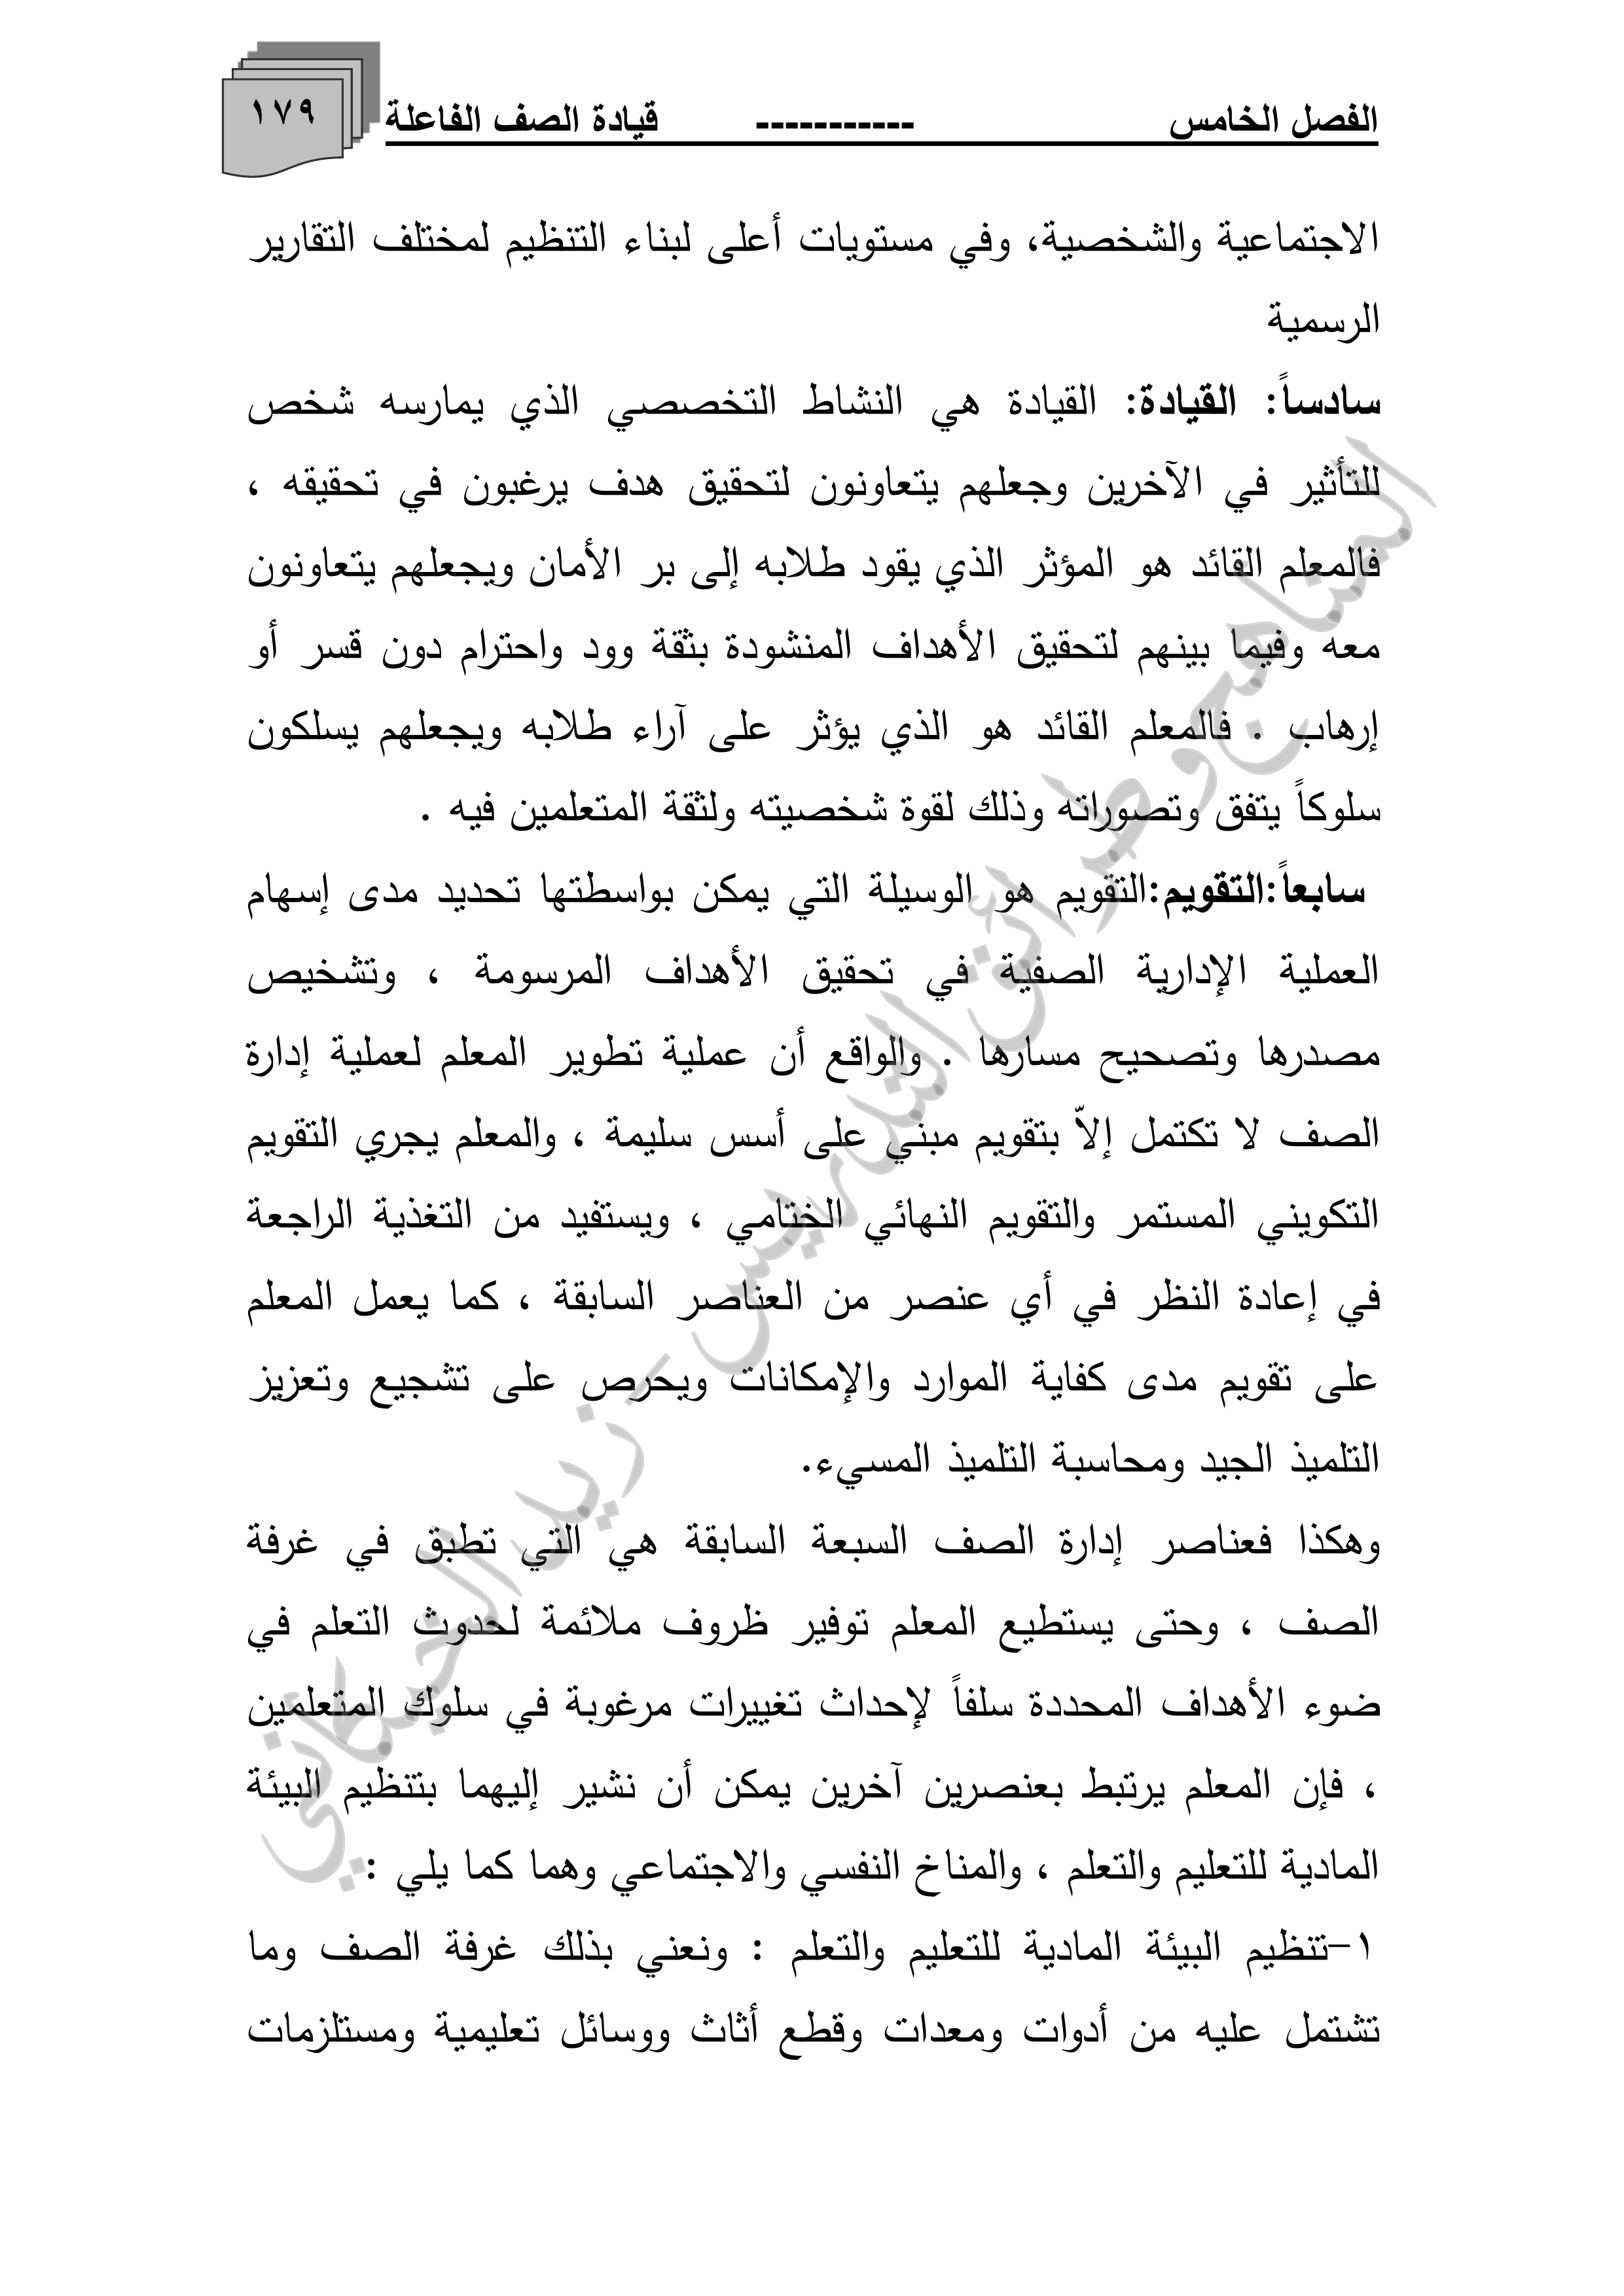 الفصل الخامس ----------- قيادة الصف الفاعلة
١٧٩
الاجتماعية والشخصية، وفي مستويات أعلى لبناء التنظيم لمختلف التقارير
الرسمية
سادساً: القيادة: القيادة هي النشاط التخصصي الذي يمارسه شخص
للتأثير في الآخرين وجعلهم يتعاونون لتحقيق هدف يرغبون في تحقيقه ،
فالمعلم القائد هو المؤثر الذي يقود طلابه إلى بر الأمان ويجعلهم يتعاونون
معه وفيما بينهم لتحقيق الأهداف المنشودة بثقة وود واحترام دون قسر أو
إرهاب . فالمعلم القائد هو الذي يؤثر على آراء طلابه ويجعلهم يسلكون
سلوكاً يتفق وتصوراته وذلك لقوة شخصيته ولثقة المتعلمين فيه .
سابعاً:التقويم:التقويم هو الوسيلة التي يمكن بواسطتها تحديد مدى إسهام
العملية الإدارية الصفية في تحقيق الأهداف المرسومة ، وتشخيص
مصدرها وتصحيح مسارها . والواقع أن عملية تطوير المعلم لعملية إدارة
الصف لا تكتمل إلاّ بتقويم مبني على أسس سليمة ، والمعلم يجري التقويم
التكويني المستمر والتقويم النهائي الختامي ، ويستفيد من التغذية الراجعة
في إعادة النظر في أي عنصر من العناصر السابقة ، كما يعمل المعلم
على تقويم مدى كفاية الموارد والإمكانات ويحرص على تشجيع وتعزيز
التلميذ الجيد ومحاسبة التلميذ المسيء.
وهكذا فعناصر إدارة الصف السبعة السابقة هي التي تطبق في غرفة
الصف ، وحتى يستطيع المعلم توفير ظروف ملائمة لحدوث التعلم في
ضوء الأهداف المحددة سلفاً لإحداث تغييرات مرغوبة في سلوك المتعلمين
، فإن المعلم يرتبط بعنصرين آخرين يمكن أن نشير إليهما بتنظيم البيئة
المادية للتعليم والتعلم ، والمناخ النفسي والاجتماعي وهما كما يلي :
١-تنظيم البيئة المادية للتعليم والتعلم : ونعني بذلك غرفة الصف وما
تشتمل عليه من أدوات ومعدات وقطع أثاث ووسائل تعليمية ومستلزمات
المناهج وطرائق التدريس - زيد الخيكاني